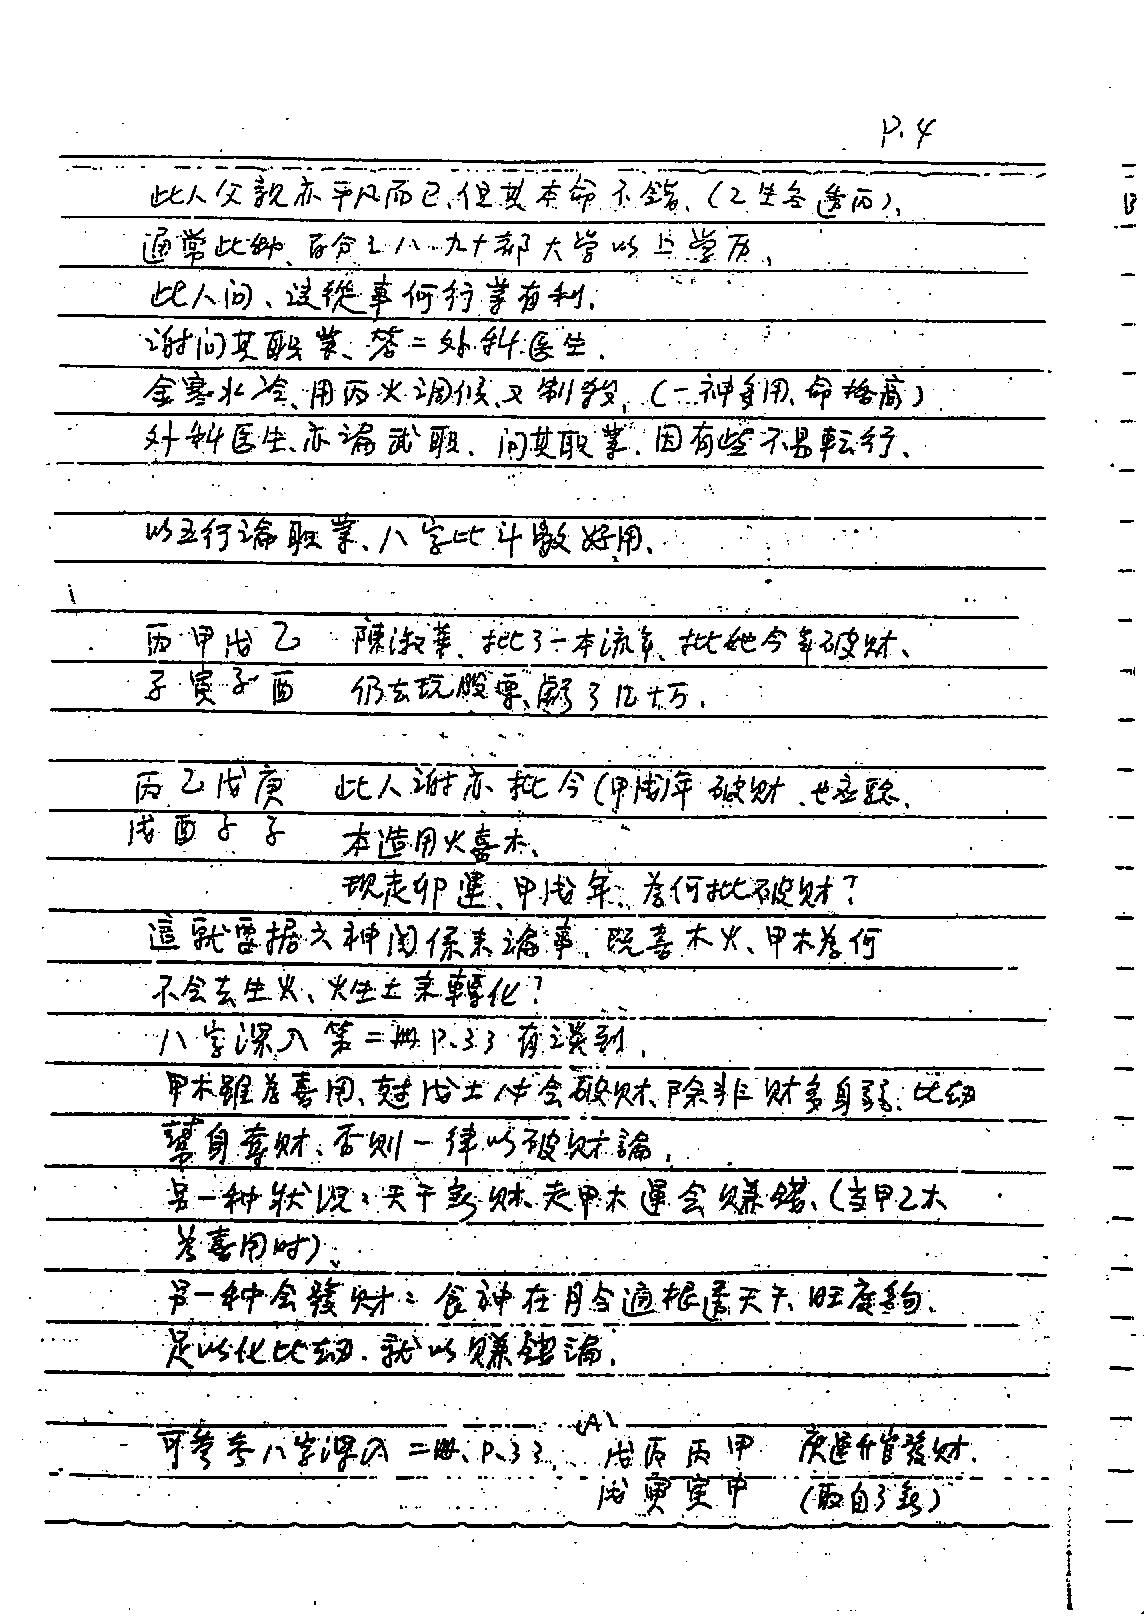 P.4
此人父親亦平凡而已、但其本命不錯、(乙生冬透丙)、
通常此种、百分之八、九十都大学以上学历、
此人问、該從事何行業有利.
謝问其职業、答=外科医生.
金寒水冷、用丙火调候、又制殺、(一神多用、命格高)
外科医生、亦論武職、问其职業、因有些不易転行、
以五行論职業、八字比斗數好用、
丙甲戊乙 陳淑華、批了一本流年、批她今年破财、
子寅子酉 仍去玩股票、虧了几十万.
丙乙戊庚 此人謝亦批今(甲戌)年破财、也应驗.
戌酉子子 本造用火喜木、
现走卯運、甲戌年、為何批破财?
這就要据六神関係来論事、既喜木火、甲木為何
不会去生火、火生土来轉化?
八字深入第二冊P.33有談到.
甲木雖為喜用、尅戊土仍会破财、除非财多身弱、比劫
幫身奪财、否則一律以破财論.
另一种狀况:天干無财、走甲木運会赚錢、(当甲乙木
為喜用时)、
另一种会發财:食神在月令通根透天干、旺度夠、
足以化比劫、就以赚錢論.
可參考八字深入二冊、P.33、 (A) 戊丙丙甲 庚運升官發财.
戌寅寅申 (取自了無)